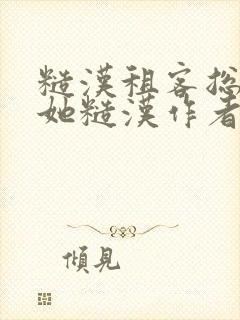 糙漢租客捻
她糙漢作者
傾見